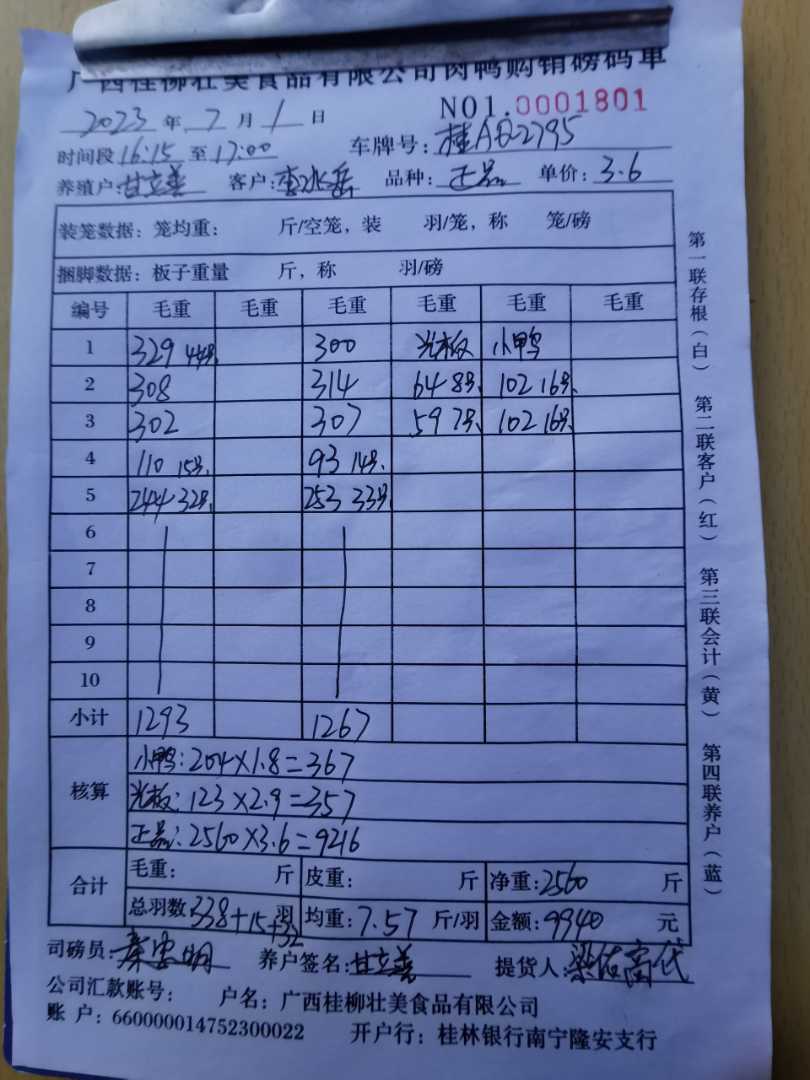 广西桂柳壮美食品有限公司肉鸭购销磅码单
2023 年 7 月 1 日 NO1.0001801
时间段 16:15 至 17:00 车牌号: 桂A 2795
养殖户: 甘立善 客户: 李冰岳 品种: 正品 单价: 3.6
装笼数据: 笼均重: 斤/空笼, 装 羽/笼, 称 笼/磅
捆脚数据: 板子重量 斤, 称 羽/磅
编号 毛重 毛重 毛重 毛重 毛重 毛重
1 329 44只 300 光板 小鸭
2 308 314 64 8只 102 16只
3 302 307 59 7只 102 16只
4 110 15只 93 14只
5 244 32只 253 33只
6
7
8
9
10
小计 1293 1267
核算
小鸭: 204×1.8=367
光板: 123×2.9=357
正品: 2560×3.6=9216
合计
毛重: 斤 皮重: 斤 净重: 2560 斤
总羽数 338+15+32 羽 均重: 7.57 斤/羽 金额: 9940 元
司磅员: 秦忠明 养户签名: 甘立善 提货人: 梁佑高代
公司汇款账号: 户名: 广西桂柳壮美食品有限公司
账 户: 660000014752300022 开户行: 桂林银行南宁隆安支行
第一联存根(白) 第二联客户(红) 第三联会计(黄) 第四联养户(蓝)